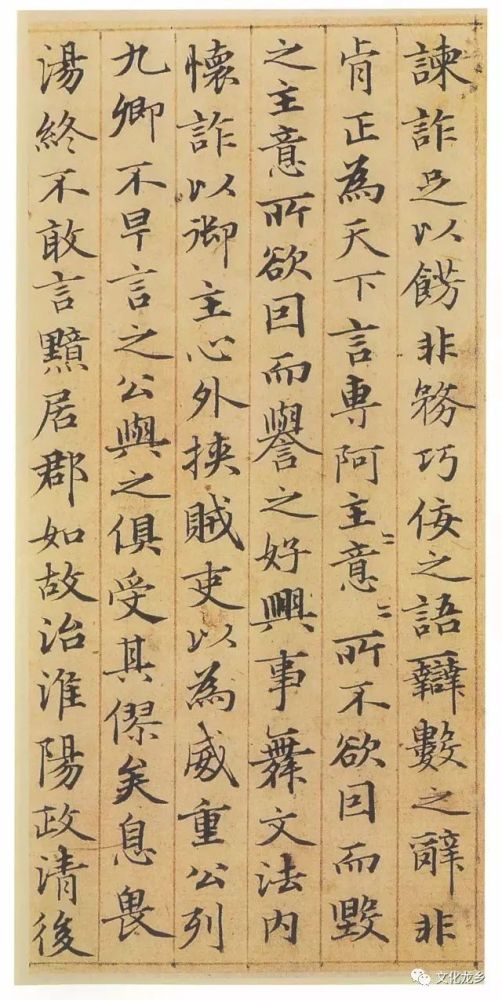 諫詐足以餝非務巧佞之語辯數之辭非
肯正為天下言専阿主〻意〻所不欲因而毀
之主意所欲因而譽之好興事舞文法内
懷詐以御主心外挟賊吏以為威重公列
九卿不早言之公與之俱受其僇矣息畏
湯終不敢言黯居郡如故治淮陽政清後
文化龙乡